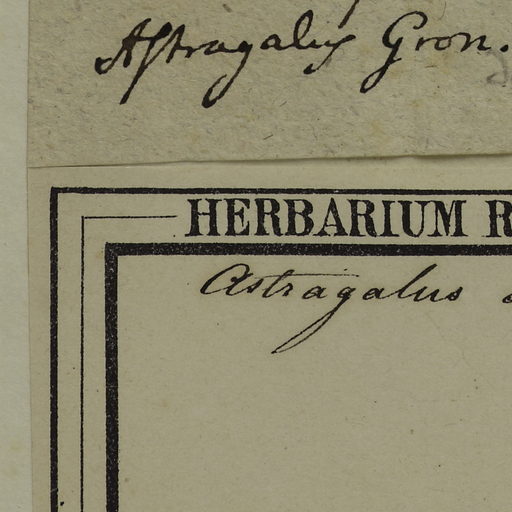 Astragalus Gron.
HERBARIUM R
Astragalus